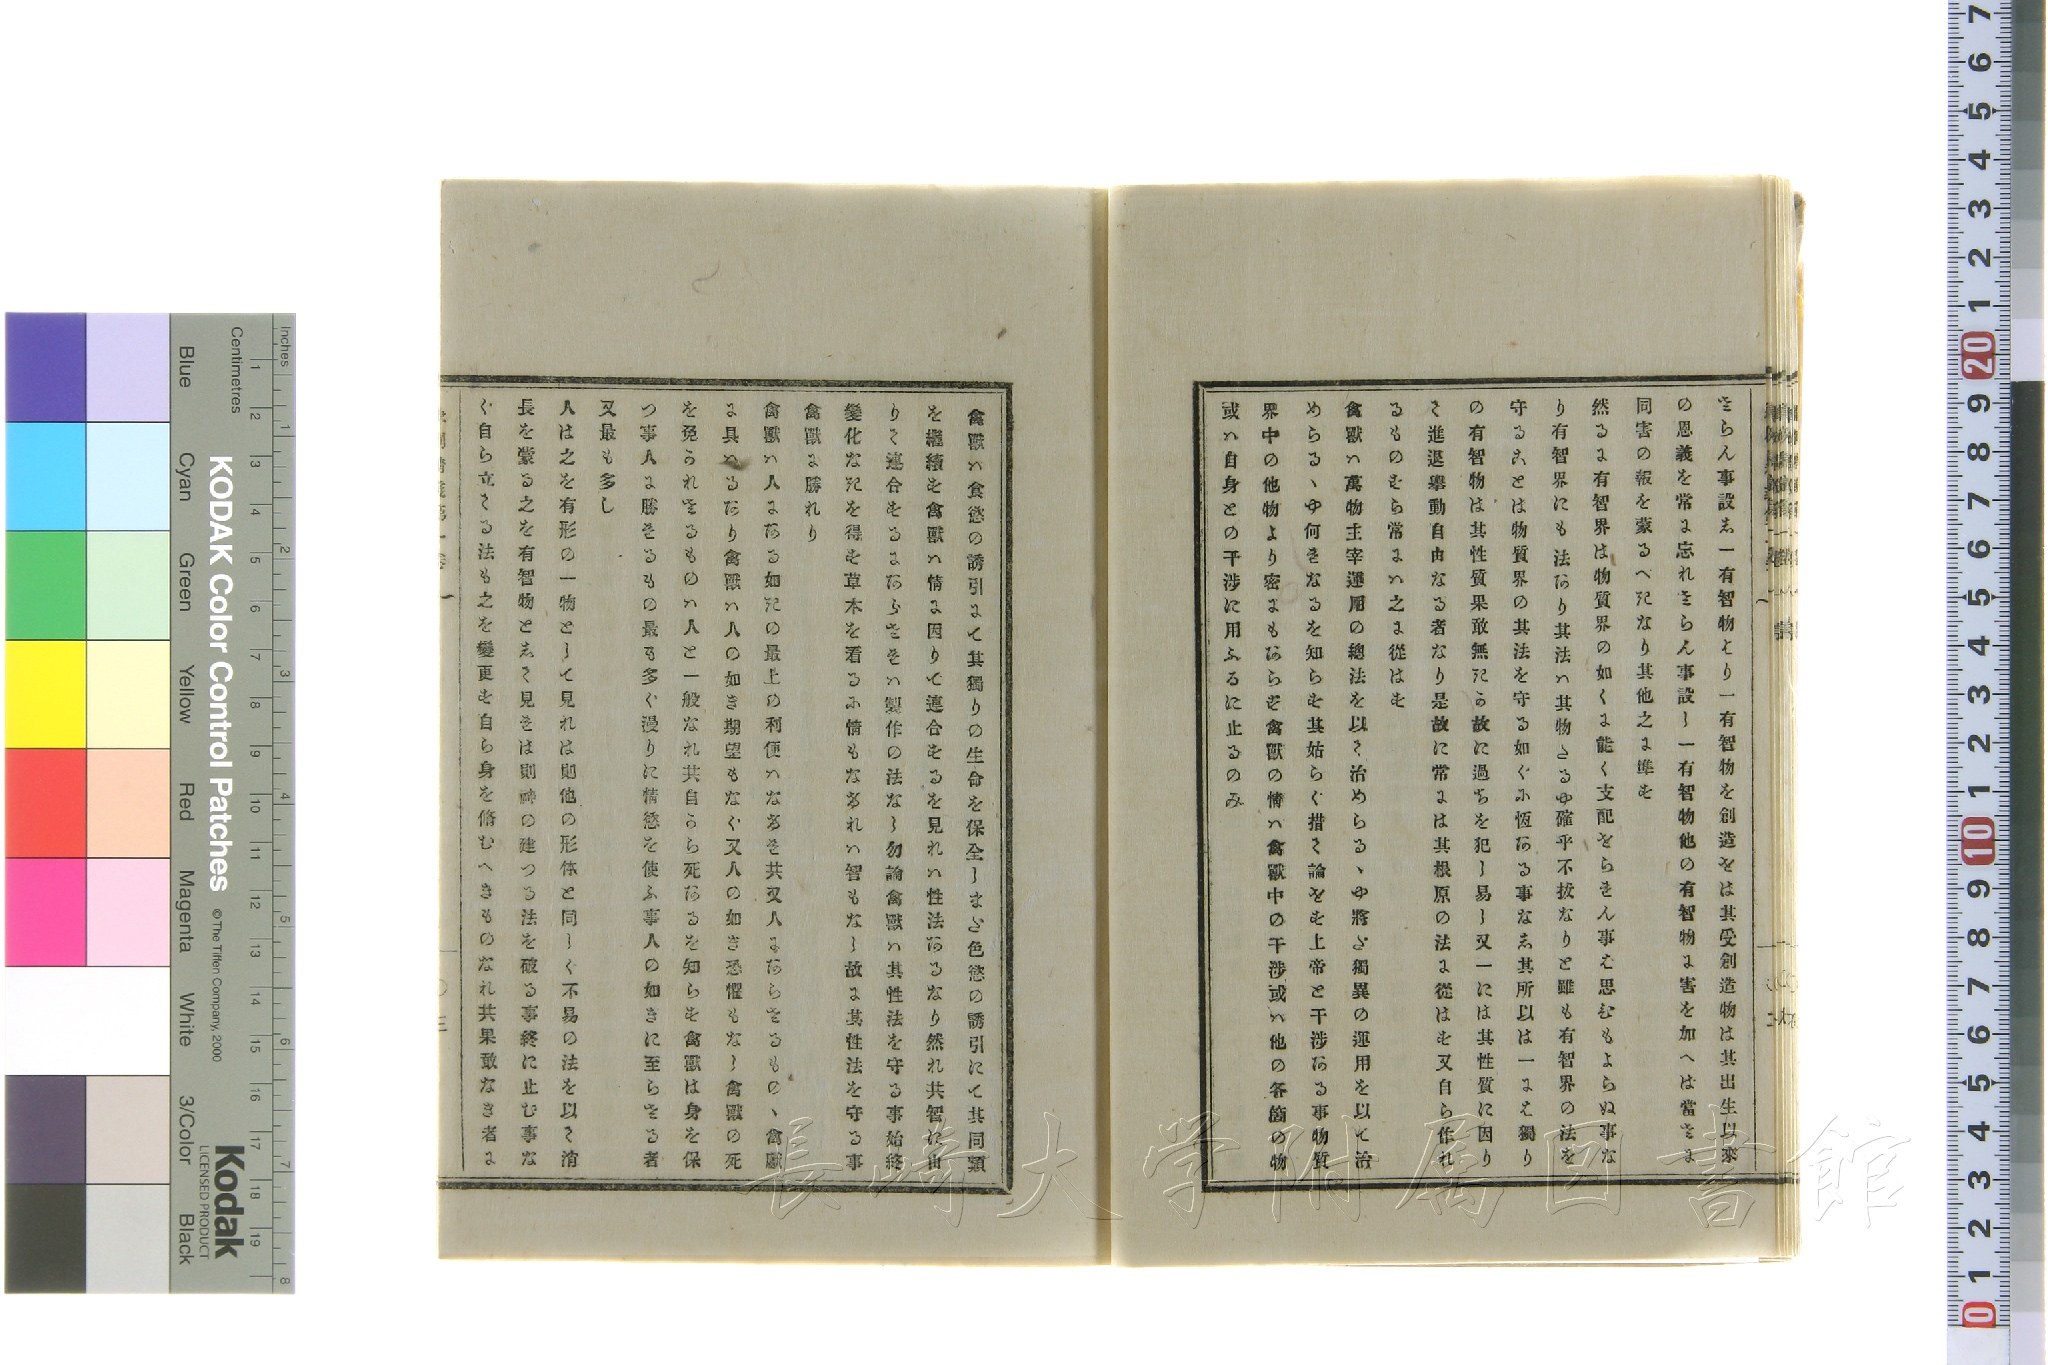 さらん事設ゑ一有智物より一有智物を創造をは其受創造物は其出生以來
の恩義を常ま忘れさらん事設し一有智物他の有智物ま害を加へは當さま
同害の報を蒙るへきなり其他之ま準も
然るま有智界は物質界の如くま能く支配をらきん事む思むもよらぬ事な
り有智界にも法あり其法ハ其物さるゆ確乎不拔なりと雖も有智界の法を
守ることは物質界の其法を守る如くふ恆ある事なゑ其所以は一まえ獨り
の有智物は其性質果敢無きる故に過ちを犯し易し又一には其性質に因り
て進退擧動自由なる者なり是故に常まは其根原の法ま從はも又自ら作れ
るものもら常まハ之ま從はも
禽獸ハ萬物主宰運用の總法を以て治めらるヽゆ將さ獨異の運用を以て治
めらるヽゆ何きなるを知らも其姑らく措て論をも上帝と干涉ある事物質
界中の他物より密まもあらも禽獸の情ハ禽獸中の干涉或ハ他の各箇の物
或ハ自身との干涉に用ふるに止るのみ
禽獸ハ食慾の誘引まて其獨りの生命を保全しまさ色慾の誘引にて其同類
を繼續も禽獸ハ情ま因りて連合もるを見れハ性法あるなり然れ共智に由
りて連合もるまあらさきハ製作の法なし勿論禽獸ハ其性法を守る事始終
變化なきを得も草木を看るふ情もなけれハ智もなし故ま其性法を守る事
禽獸ま勝れり
禽獸ハ人まある如きの最上の利便ハなけき共又人まあらさるものヽ禽獸
ま具ハるあり禽獸ハ人の如き期望もなく又人の如き恐懼もなし禽獸の死
を免られさるものハ人と一般なれ共自うら死あるを知らも禽獸は身を保
つ事人ま勝さるもの最も多く漫りに情慾を使ふ事人の如きに至らさる者
又最も多し
人は之を有形の一物として見れは則他の形体と同しく不易の法を以て消
長を蒙る之を有智物とゑて見きは則神の建つる法を破る事終に止む事な
く自ら立てる法も之を變更も自ら身を脩むへきものなれ共果敢なき者ま
長崎大学附属図書館
KODAK Color Control Patches
© The Tiffen Company, 2000
Kodak
LICENSED PRODUCT
Inches
Centimetres
Blue
Cyan
Green
Yellow
Red
Magenta
White
3/Color
Black